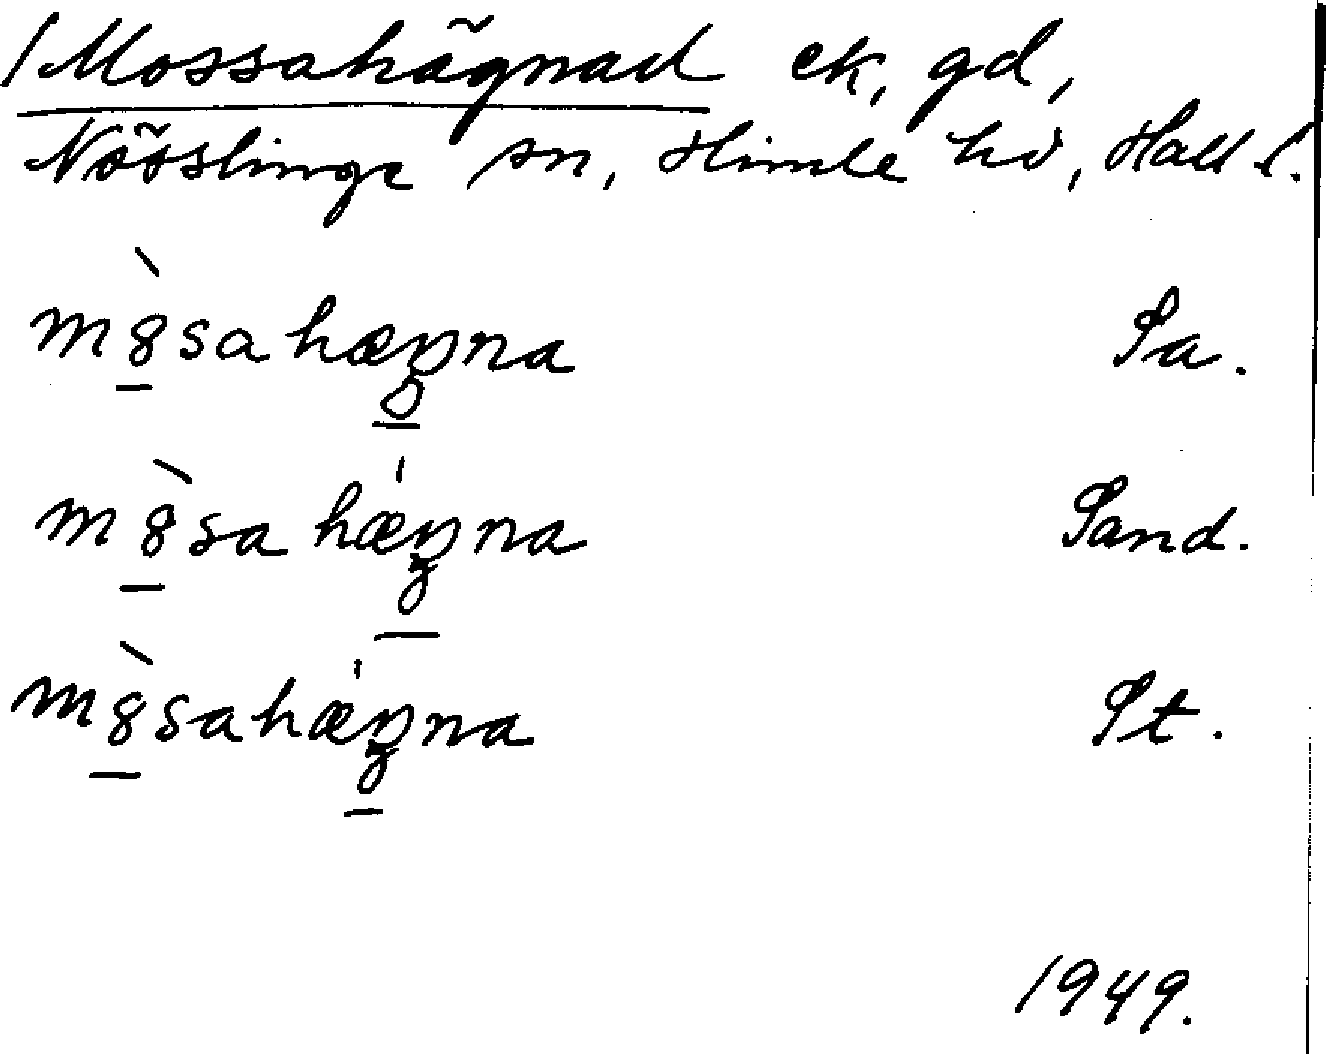 /Mossahägnad ek, gd,
Nösslinge sn, Himle hd, Hall l.
mòsahæŋna Sa.
mòsahǽŋna Sand.
mòsahǽŋna St.
1949.